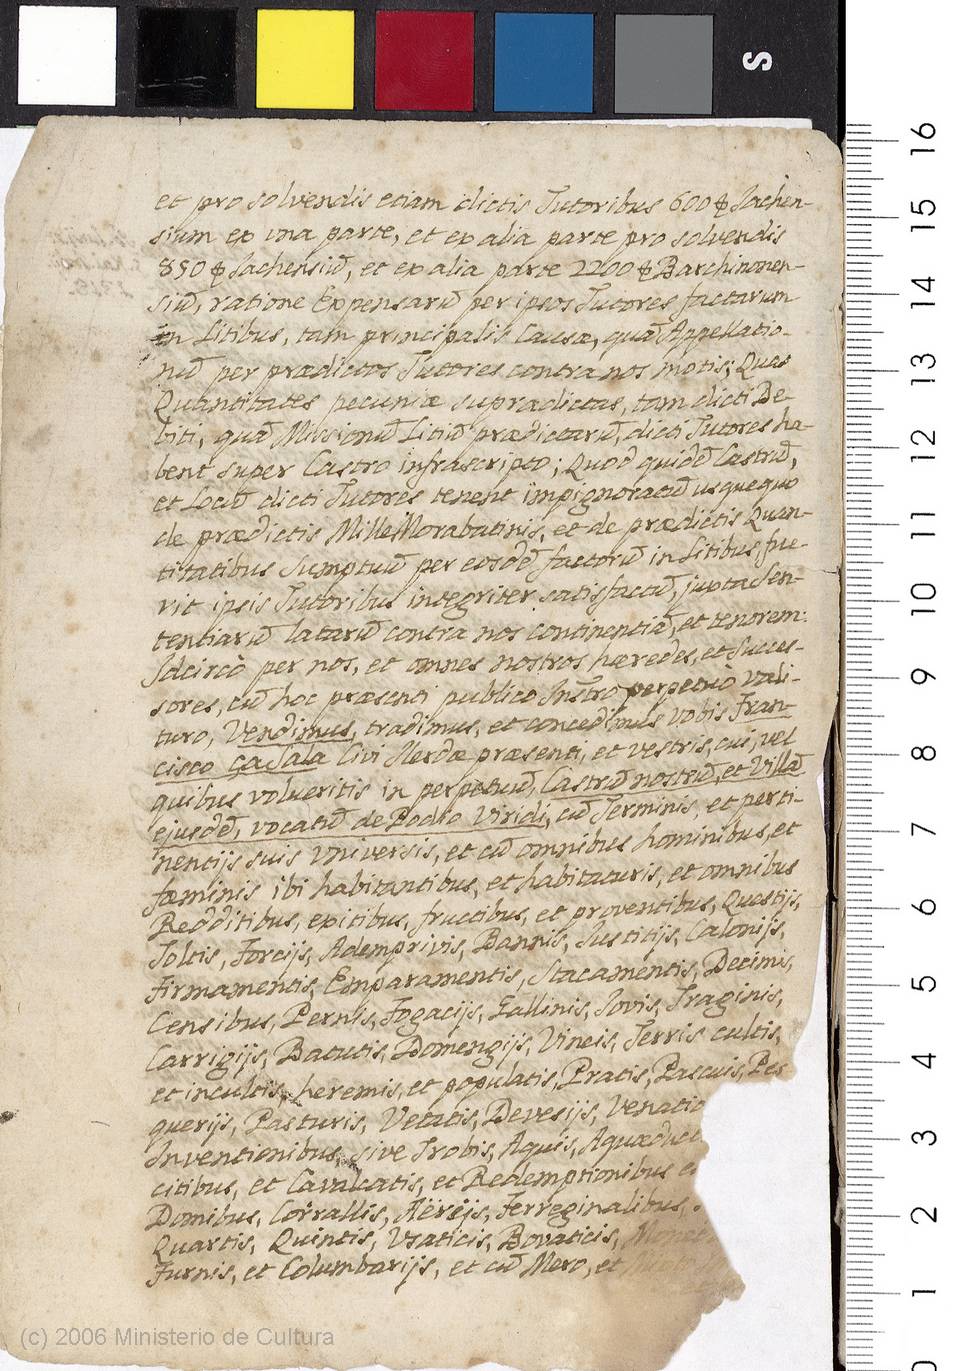 et pro solvendis etiam dictis Tutoribus 600 ₿ Jachen-
sium ex una parte, et ex alia parte pro solvendis
850 ₿ Jachensiū, et ex alia parte 2200 ₿ Barchinonen-
siū, ratione Expensarū per ipsos Tutores factarum
in Litibus, tam principalis Causæ, quā Appellatio-
nū per prædictos Tutores contra nos motis; Quas
Quantitates pecuniæ supradictas, tam dicti De-
biti, quā Missionū Litiū prædictarū, dicti Tutores ha-
bent super Castro infrascripto; Quod quidē Castrū,
et Locū dicti Tutores tenent impignoratū usquequo
de prædictis Mille Morabatinis, et de prædictis Quan-
titatibus Sumptuū per eosdē factorū in Litibus, fue-
rit ipsis Tutoribus integriter satisfactū, juxta Sen-
tentiarū latarū contra nos continentiā, et tenorem:
Idcircò per nos, et omnes nostros hæredes, et Succes-
sores, cū hoc præsenti publico Instro perpetuò vali-
turo, Vendimus, tradimus, et concedimus Vobis Fran-
cisco çaSala Civi Ilerdæ præsenti, et vestris, cui, vel
quibus volueritis in perpetuū, Castrū nostrū, et Villā
ejusdē, vocatū de Podio Viridi, cū Terminis, et perti-
nentijs suis Universis, et cū omnibus hominibus, et
fæminis ibi habitantibus, et habitaturis, et omnibus
Redditibus, exitibus, fructibus, et proventibus, Questijs,
Toltis, Forcijs, Ademprivis, Bannis, Justitijs, Calonijs,
Firmamentis, Emparamentis, Stacamentis, Decimis,
Censibus, Pernis, Fogacijs, Gallinis, Jovis, Traginis,
Carrigijs, Batutis, Domengijs, Vineis, Terris cultis,
et incultis, heremis, et populatis, Pratis, Pascuis, Pes
querijs, Pasturis, Vetatis, Devesijs, Venatio
Inventionibus, sive Trobis, Aquis, Aquæduct
citibus, et Cavalcatis, et Redemptionibus e
Domibus, Corrallis, Aëreis, Ferreginalibus,
Quartis, Quintis, Usaticis, Bovaticis, Monet
Furnis, et Columbarijs, et cū Mero, et
(c) 2006 Ministerio de Cultura
S
16
15
14
13
12
11
10
9
8
7
6
5
4
3
2
1
0